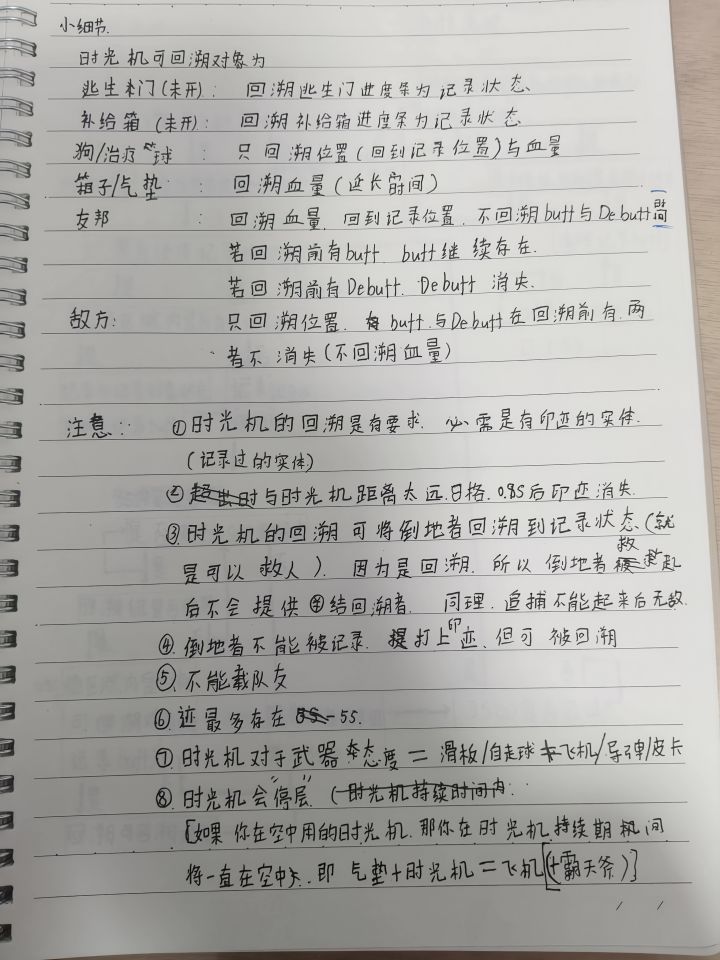 小细节.
时光机可回溯对象为
逃生门(未开): 回溯逃生门进度条为记录状态、
补给箱(未开): 回溯补给箱进度条为记录状态
狗/治疗球 : 只回溯位置(回到记录位置)与血量
箱子/气垫 : 回溯血量(延长时间)
友邦 : 回溯血量、回到记录位置、不回溯buff与Debuff时间
若回溯前有buff、buff继续存在.
若回溯前有Debuff、Debuff 消失.
敌方: 只回溯位置、buff、与Debuff在回溯前有、两
者不消失(不回溯血量)
注意: ①时光机的回溯是有要求、必需是有印迹的实体.
(记录过的实体)
②与时光机距离太远、日格、0.8S后印迹消失.
③时光机的回溯可将倒地者回溯到记录状态、(就
是可以救人)、因为是回溯、所以倒地者救起
后不会提供结回溯者、同理、追捕不能起来后无敌.
④倒地者不能被记录、打上印迹、但可被回溯
⑤、不能载队友
⑥、迹最多存在 5S.
⑦、时光机对于武器态度=滑板/自走球飞机/导弹/皮卡
⑧、时光机会"停层"、(时光机持续时间内:
[如果你在空中用的时光机、那你在时光机持续期间
将一直在空中、即 气垫+时光机=飞机[(+霸天条)]